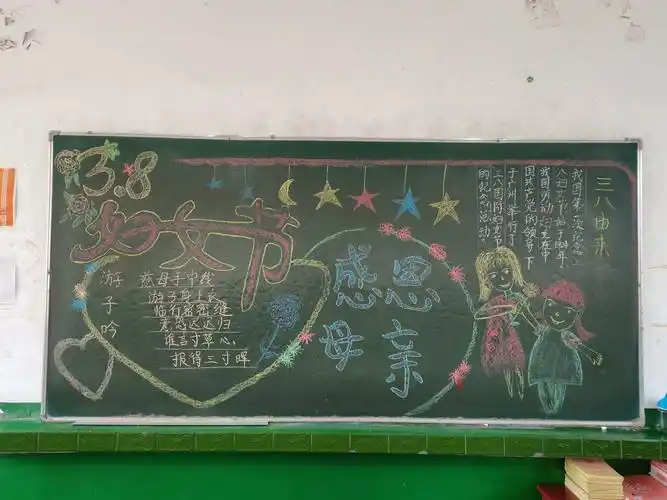 3.8
妇女节
游子吟
慈母手中线
游子身上衣
临行密密缝
意恐迟迟归
谁言寸草心,
报得三寸晖
感恩
母亲
三八由来
我国第一次纪念三
八妇女节于1924年
我国劳动妇女在中
国共产党的领导下
于广州举行了
三八国际妇女节
的纪念活动。